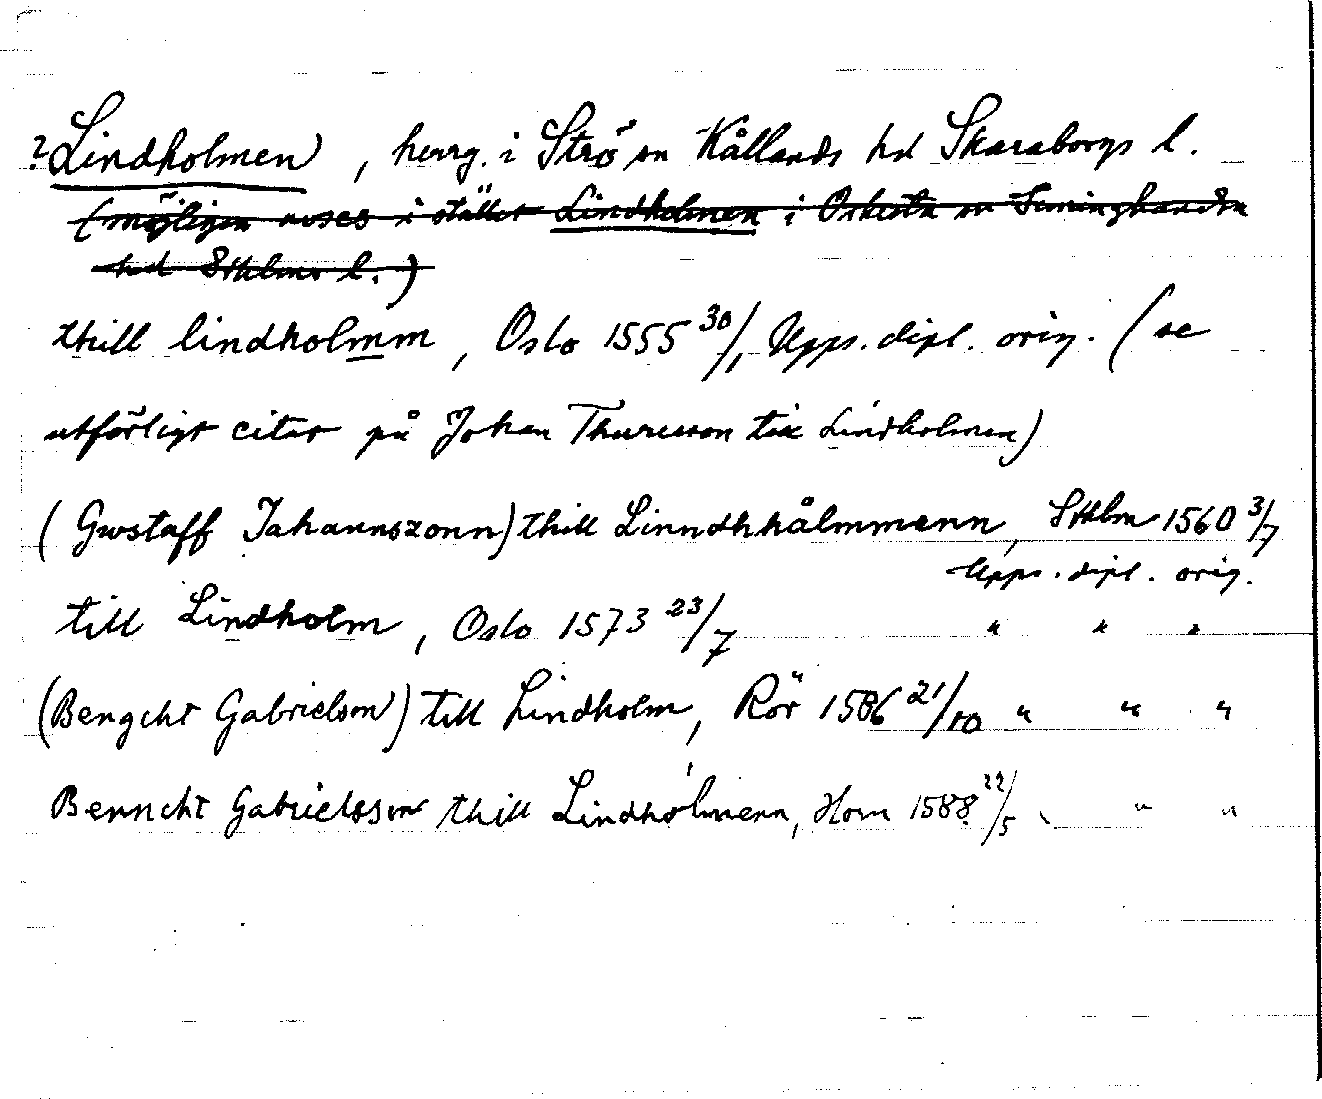 ? Lindholmen, herrg. i Strö sn Kållands hd Skaraborgs l.
(möjligen avses i stället Lindholmen i Orkesta sn Seminghundra
hd Sthlms l.)
thill lindholmm, Oslo 1555 30/1 Upps. dipl. orig. (se
utförligt citat på Johan Thuresson till Lindholmen)
(Gwstaff Jahannszonn) thill Linndhhålmmenn, Sthlm 1560 3/7
Upps. dipl. orig.
till Lindholm, Oslo 1573 23/7 " " "
(Bengcht Gabrielson) till Lindholm, Rör 1586 21/10 " " "
Benncht Gabrielsson thill Lindholmenn, Horn 1588 22/5 " " "